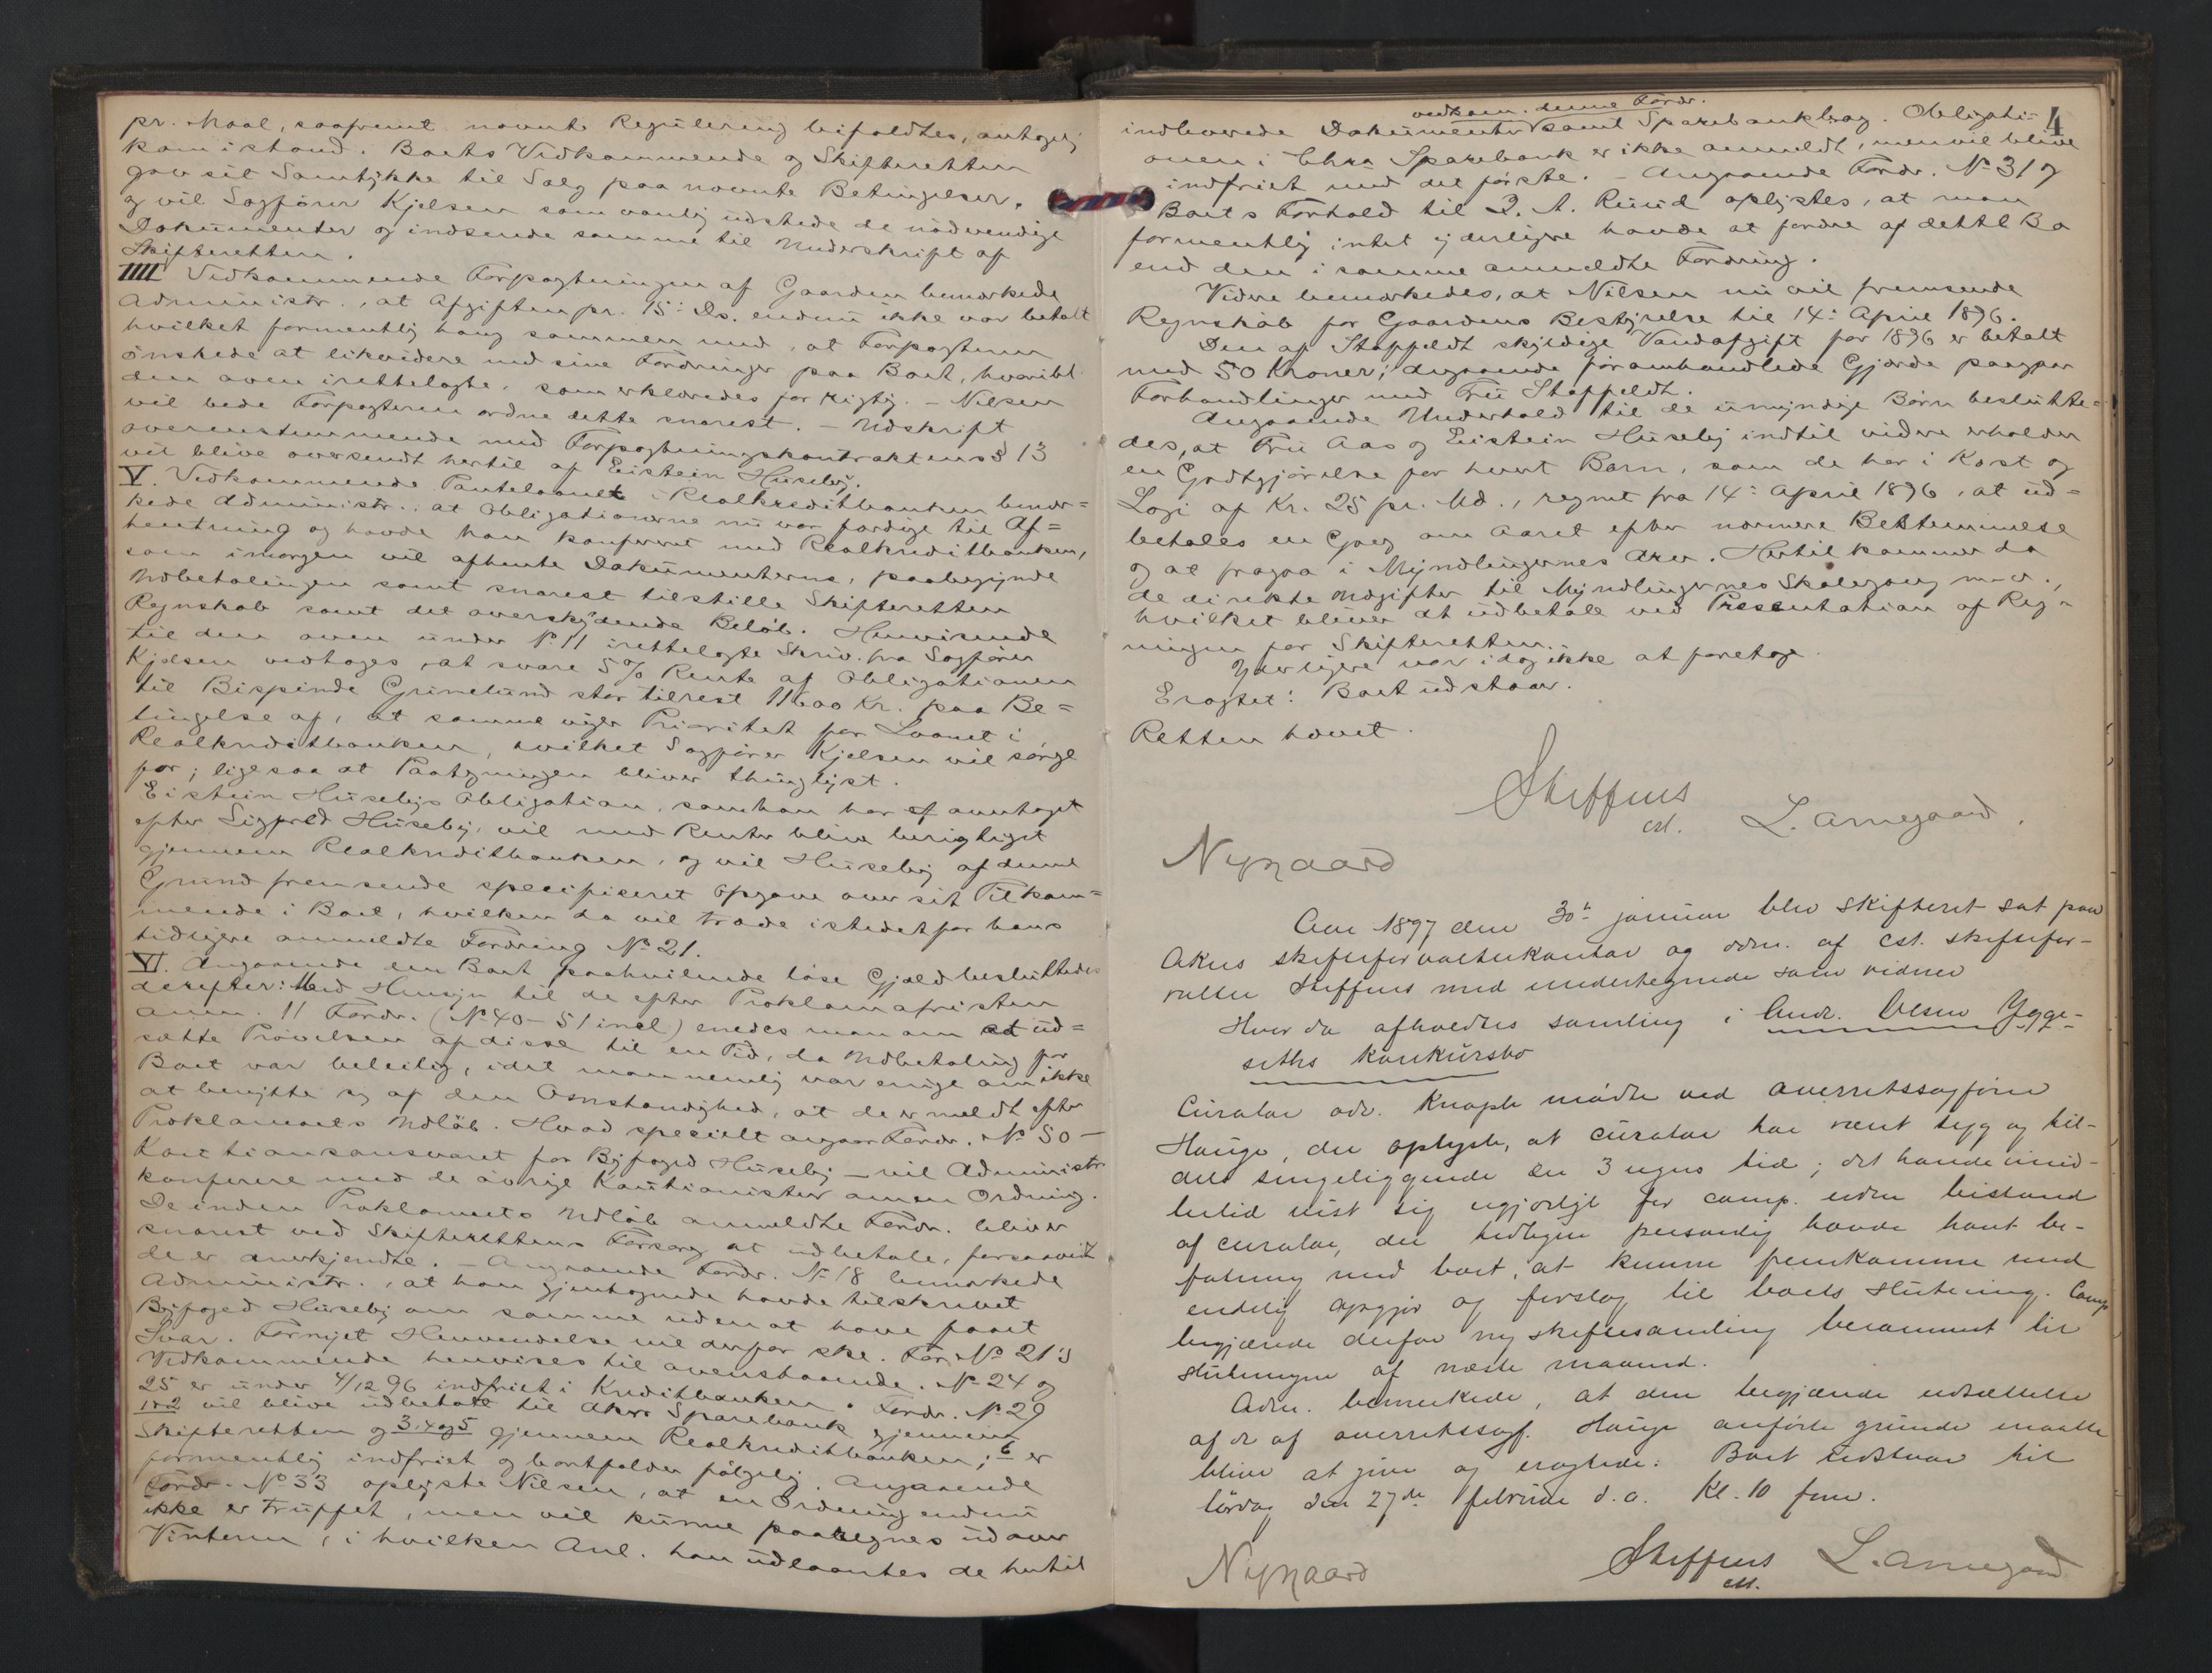 pr. Maal, saafremt nævnte Regulering bifaldtes, antagelig
kom istand. Boets Vedkommende og Skifteretten
gav sit Samtykke til Salg paa nævnte Betingelser,
og vil Sagfører Kjelsen som vanlig udstede de nødvendige
Dokumenter og indsende samme til Underskrift af
Skifteretten.
IIII Vedkommende Forpagtningen af Gaarden bemærkede
Administr., at Afgiften pr. 15: Ds. endnu ikke var betalt
hvilket formentlig hang sammen med, at Forpagteren
ønskede at likvidere med sine Fordringer paa Boet, hvoriblt.
den oven irettelagte, som erklæredes for rigtig. – Nilsen
vil bede Forpagteren ordne dette snarest. – Udskrift
overensstemmende med Forpagtningskontraktens § 13
vil blive oversendt hertil af Eistein Huseby.
V. Vedkommende Pantelaanet i Realkreditbanken bemær=
kede Administr.: at Obligationerne nu var færdige til Af=
hentning og havde han konfereret med Realkreditbanken,
som imorgen vil afhente Dokumenterne, paabegynde
Udbetalingen samt snarest tilstille Skifteretten
Regnskab samt det overskydende Beløb. Henvisende
til den oven under No 11 irettelagte Skriv. fra Sagfører
Kjelsen vedtoges, at svare 5 % Rente af Obligationen
til Bispinde Grimelund stor tilrest 11600 Kr. paa Be=
tingelse af, at samme viger Prioritet for Laanet i
Realkreditbanken, hvilket Sagfører Kjelsen vil sørge
for; ligesaa at Paategningen bliver thinglyst.
Eistein Husebys Obligation, som han har af overtaget
efter Sigfred Huseby, vil med Renter blive berigtiget
gjennem Realkreditbanken, og vil Huseby af denne
Grund fremsende specificeret Opgave over sit Tilkom=
mende i Boet, hvilken da vil træde istedetfor hans
tidligere anmeldte Fordring No 21.
VI. Angaaende den Boet paahvilende løse Gjæld besluttedes
derefter: Med Hensyn til de efter Proklamafristen
anm. 11 Fordr. (No 40–51 incl) enedes man om at ud=
sætte Prøvelsen af disse til en Tid, da Udbetaling for
Boet var beleilig, idet man nemlig var enige om ikke
at benytte sig af den Omstændighed, at de er meldt efter
Proklamaets Udløb. Hvad specielt angaar Fordr. No 50 –
Kautionsansvaret for Byfoged Huseby – vil Administr
konferere med de øvrige Kautionister om en Ordning.
De inden Proklamaets Udløb anmeldte Fordr. bliver
snarest ved Skifterettens Forsorg at udbetale, forsaavidt
de er anerkjendte. – Angaaende Fordr. No 18 bemærkede
Administr., at han gjentagende havde tilskrevet
Byfoged Huseby om samme uden at have faaet
Svar. Fornyet Henvendelse vil derfor ske. For No 21's
Vedkommende henvises til ovenstaaende. No 24 og
25 er under 4/12 96 indfriet i Kreditbanken. Fordr. No 29
1 & 2 vil blive udbetalt til Akers Sparebank gjennem
Skifteretten og 3, 4 og 5 gjennem Realkreditbanken; 6 er
formentlig indfriet og bortfalder følgelig. Angaaende
Fordr. No 33 oplyste Nilsen, at en Ordning endnu
ikke er truffet, men vil kunne paaregnes udover
Vinteren, i hvilken Anl. han udlaantes de hertil
4
vedkom. denne Fordr.
indleverede Dokumenter samt Sparebankbog. Obligati=
onen i Chra Sparebank er ikke anmeldt, men vil blive
indfriet med det første. – Angaaende Fordr. No 31 og
Boets Forhold til A. Ruud oplystes, at man
formentlig intet yderligere havde at fordre af dette Bo
end den i samme anmeldte Fordring.
Videre bemærkedes, at Nilsen nu vil fremsende
Regnskab for Gaardens Bestyrelse til 14: April 1896.
Den af Stoppeldt skyldige Vandafgift for 1896 er betalt
med 50 Kroner; angaaende foromhandlede Gjærde paagaar
Forhandlinger med Fru Stoppeldt.
Angaaende Underhold til de umyndige Børn beslutte=
des, at Fru Aas og Eistein Huseby indtil videre erholder
en Godtgjørelse for hvert Barn, som de har i Kost og
Logi af Kr. 25 pr. Md., regnet fra 14: April 1896, at ud=
betales en Gang om Aaret efter nærmere Bestemmelse
og at fragaa i Myndlingernes Arv. Hertil kommer da
de direkte Udgifter til Myndlingernes Skolegang m.v.,
hvilket bliver at udbetale ved Presentation af Reg=
ningen for Skifteretten.
Yderligere var idag ikke at foretage.
Eragtet: Boet udstaar.
Retten hævet.
Steffens
cst.
L. Arnegaard.
Nygaard
Aar 1897 den 30te januar blev skifteret sat paa
Akers skifteforvalterkontor og adm. af cst. skiftefor-
valter Steffens med undertegnede som vidner
Hvor da afholdtes samling i Andr. Olsen Ygge-
seths konkursbo
Curator adv. Knaph mødte ved overretssagfører
Hauge, der oplyste, at curator har været syg og til-
dels sengeliggende en 3 ugers tid; det havde imid-
lertid vist sig ugjørligt for comp. uden bistand
af curator, der tidligere personlig havde havt be-
fatning med boet, at kunne fremkomme med
endelig opgjør og forslag til boets slutning. Comp
begjærede derfor ny skiftesamling berammet til
slutningen af næste maaned.
Adm. bemerkede, at den begjærede udsættelse
af de af overretssagf. Hauge anførte grunde maatte
blive at give og eragtede: Boet udstaar til
lørdag den 27de februar d.a. Kl. 10 fm.
Nygaard
Steffens
cst.
L. Arnegaard